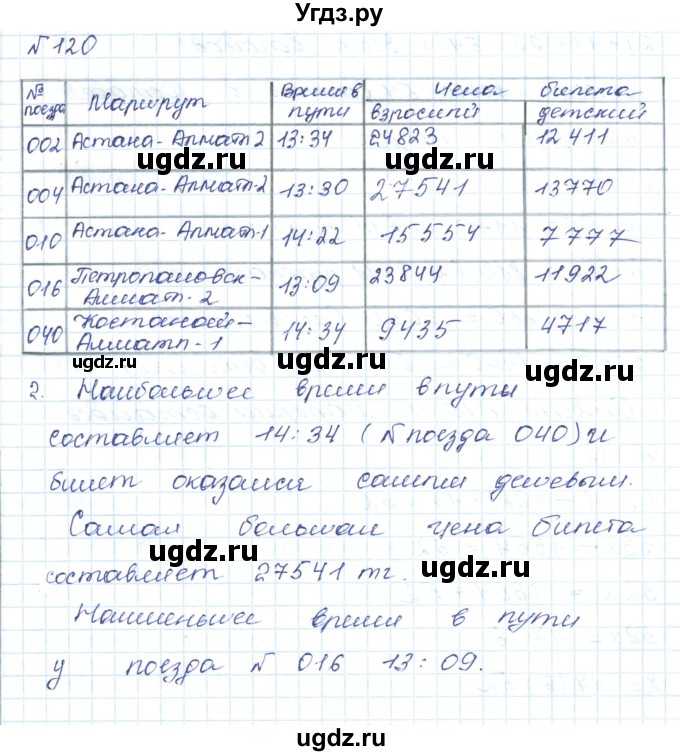 Угдз.ру
№ 120
№ поезда Маршрут Время в пути Цена билета
взрослый детский
002 Астана-Алматы 2 13:34 24823 12 411
ugdz.ru ugdz.ru
004 Астана-Алматы-2 13:30 27541 13770
010 Астана-Алматы-1 14:22 15554 7777
ugdz.ru ugdz.ru
016 Петропаловск-Алмат-2 13:09 23844 11922
040 Костанай-Алматы-1 14:34 9435 4717
ugdz.ru ugdz.ru
2. Наибольшее время в пути
составляет 14:34 (№ поезда 040) и
билет оказался самым дешевым.
ugdz.ru
Самая большая цена билета
ugdz.ru ugdz.ru
составляет 27541 тг.
Наименьшее время в пути
у поезда № 016 13:09.
ugdz.ru ugdz.ru